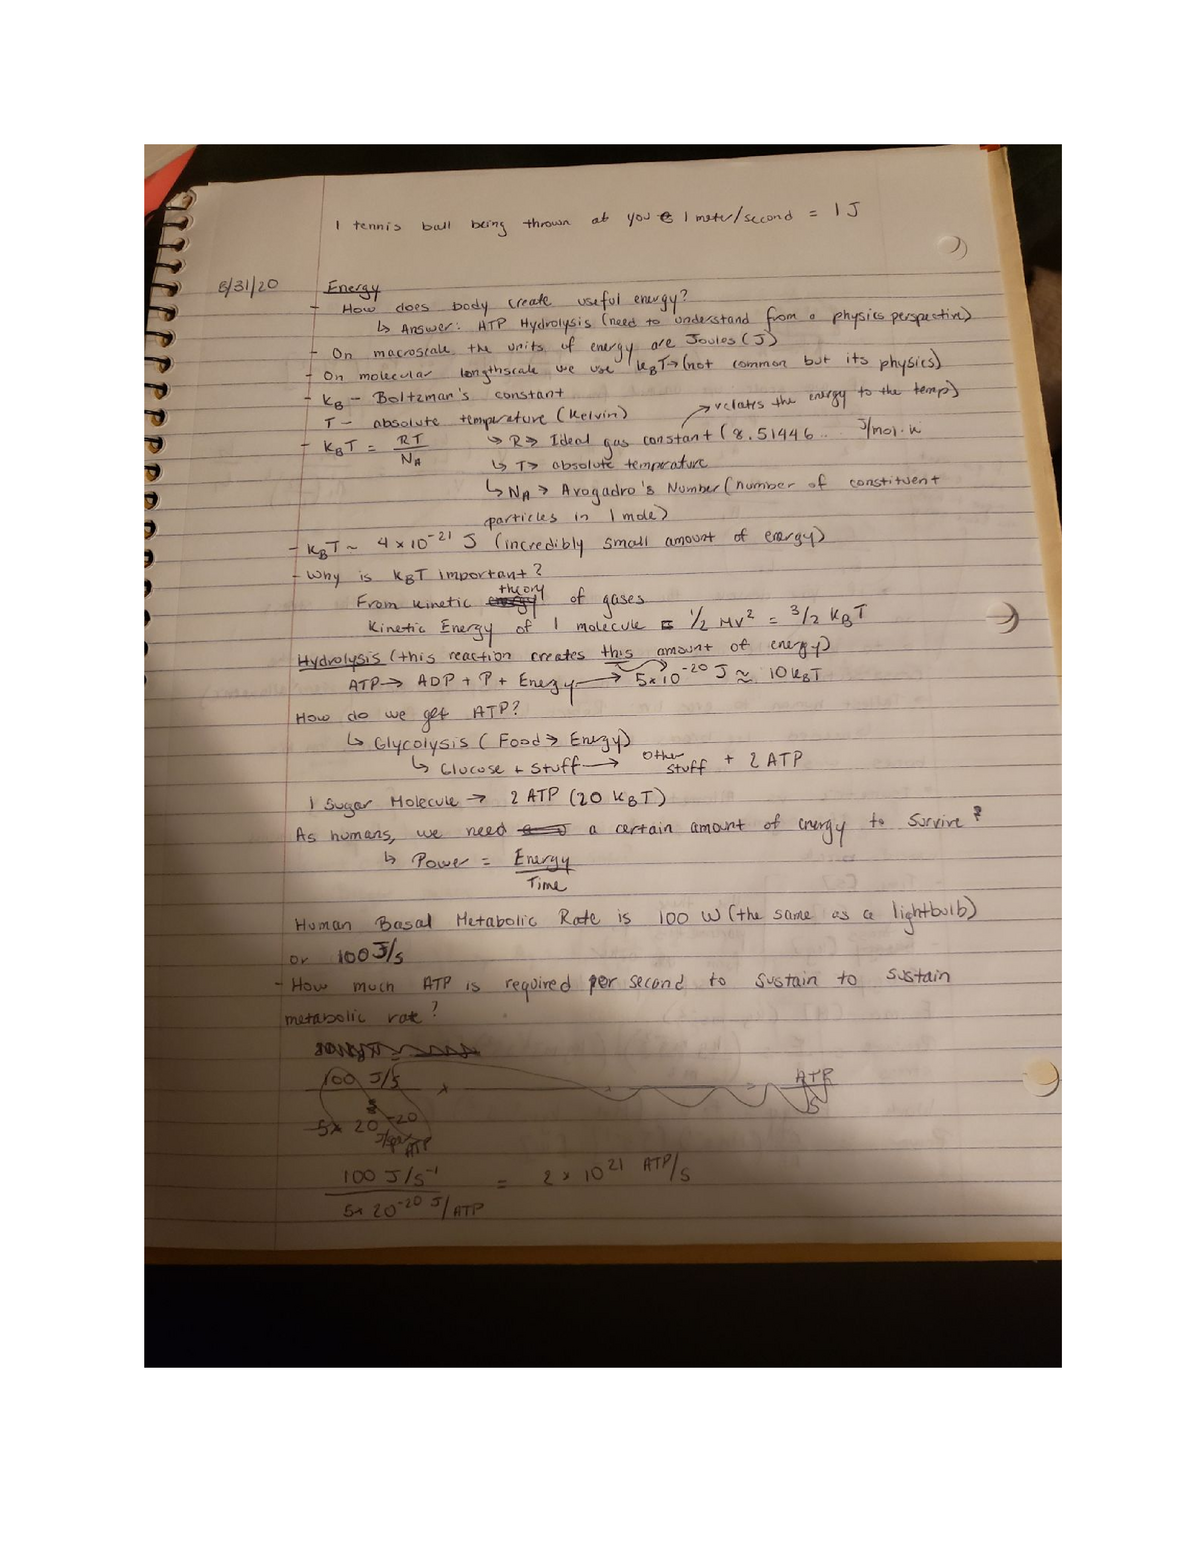 1 tennis ball being thrown at you @ 1 meter/second = 1 J
8/31/20 Energy
- How does body create useful energy?
↳ Answer: ATP Hydrolysis (need to understand from a physics perspective)
- On macroscale the units of energy are Joules (J)
- On molecular lengthscale we use kBT → (not common but its physics)
- KB - Boltzman's constant
→ relates the energy to the temp)
T - absolute temperature (Kelvin)
- KBT = RT/NA ↳ R → Ideal gas constant (8.51446... J/mol·K
↳ T → absolute temperature
↳ NA → Avogadro's Number (number of constituent
particles in 1 mole)
- KBT ~ 4 x 10^-21 J (incredibly small amount of energy)
- Why is KBT important?
From kinetic theory of gases
Kinetic Energy of 1 molecule = 1/2 MV² = 3/2 KBT
Hydrolysis (this reaction creates this amount of energy)
ATP → ADP + P + Energy → 5x10^-20 J ≈ 10 KBT
How do we get ATP?
↳ Glycolysis (Food → Energy)
↳ Glucose + Stuff → other stuff + 2 ATP
1 Sugar Molecule → 2 ATP (20 KBT)
As humans, we need a certain amount of energy to survive?
↳ Power = Energy
Time
Human Basal Metabolic Rate is 100 W (the same as a lightbulb)
or 100 J/s
- How much ATP is required per second to sustain to sustain
metabolic rate?
100 J/s x ATP/S
5x 20^-20 ATP
100 J/s^-1 = 2 x 10^21 ATP/s
5x 20^-20 J/ATP